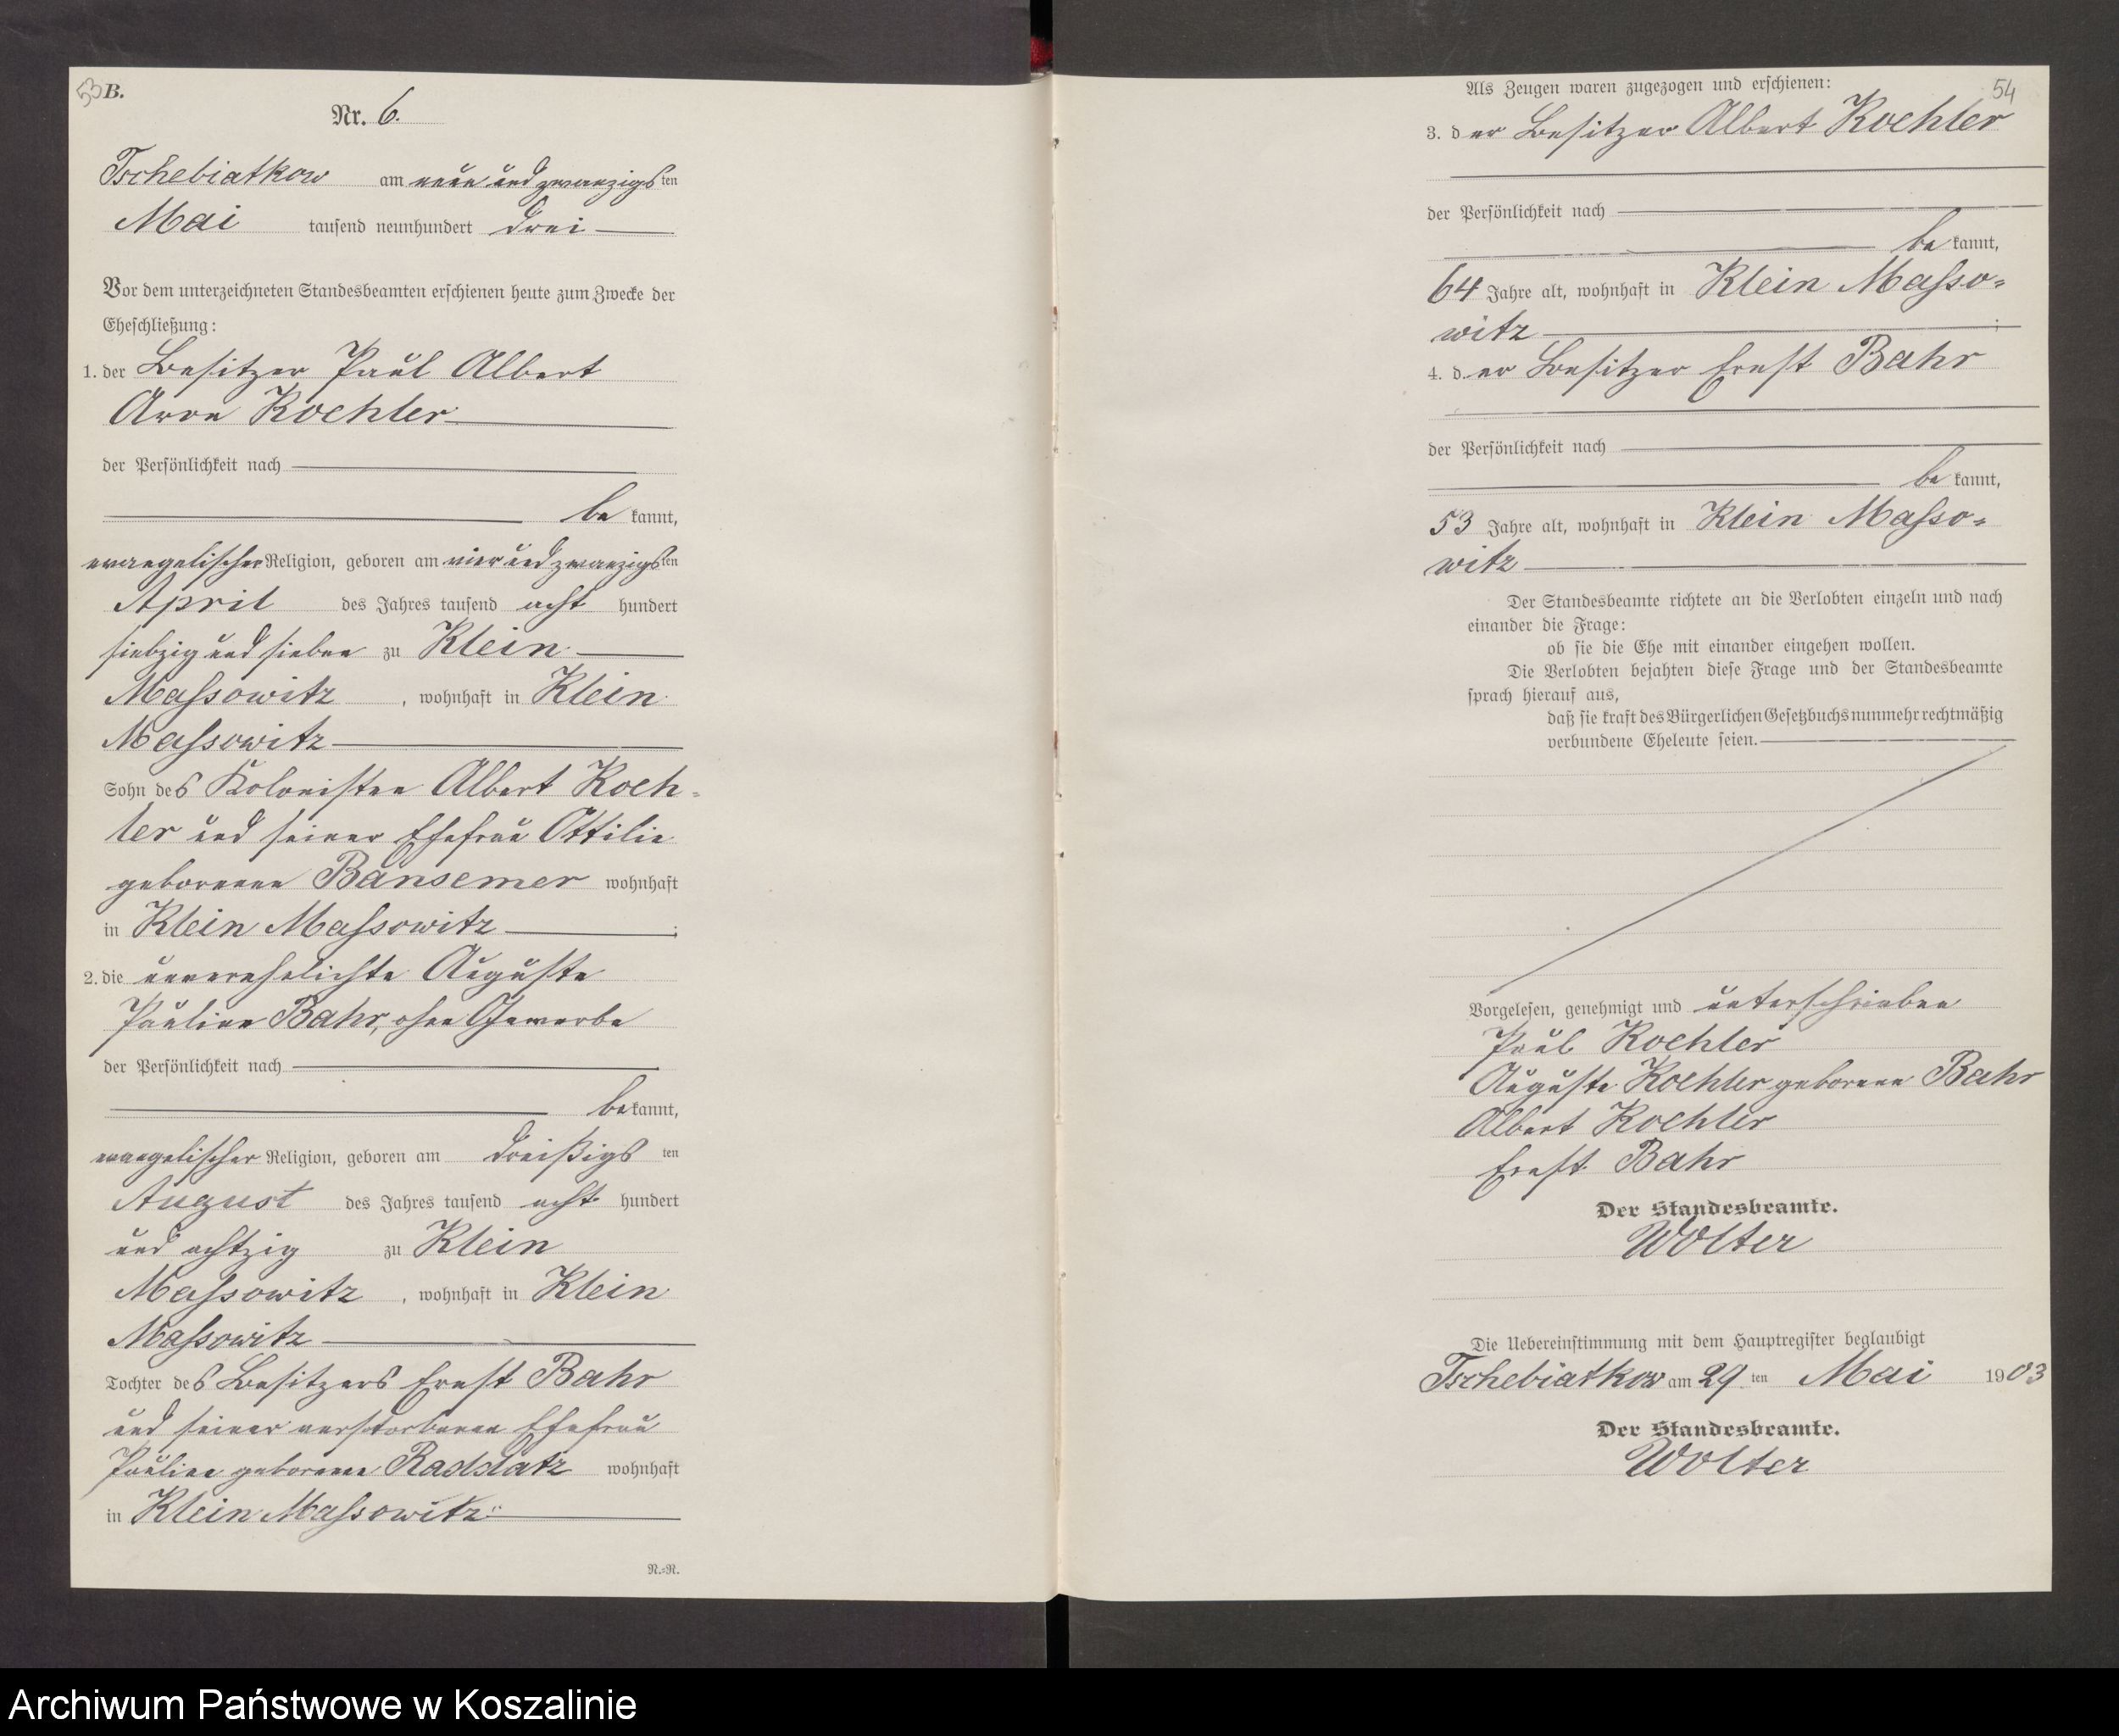 53 B.
Nr. 6.
Tschebiatkow am neun und zwanzigsten
Mai tausend neunhundert drei
Vor dem unterzeichneten Standesbeamten erschienen heute zum Zwecke der
Eheschließung:
1. der Besitzer Paul Albert
Koehler
der Persönlichkeit nach
be kannt,
evangelischer Religion, geboren am vier und zwanzigsten
April des Jahres tausend acht hundert
siebzig und sieben zu Klein
Massowitz, wohnhaft in Klein
Massowitz
Sohn des Kolonisten Albert Koeh=
ler und seiner Ehefrau Ottilie
geborenen Bansemer wohnhaft
in Klein Massowitz;
2. die unverehelichte Auguste
Pauline Bahr, ohne Gewerbe
der Persönlichkeit nach
be kannt,
evangelischer Religion, geboren am dreißigsten
August des Jahres tausend acht hundert
und achtzig zu Klein
Massowitz, wohnhaft in Klein
Massowitz
Tochter des Besitzers Ernst Bahr
und seiner verstorbenen Ehefrau
Pauline geborenen Raddatz wohnhaft
in Klein Massowitz
R.=R.
54
Als Zeugen waren zugezogen und erschienen:
3. der Besitzer Albert Koehler
der Persönlichkeit nach
be kannt,
64 Jahre alt, wohnhaft in Klein Masso=
witz;
4. der Besitzer Ernst Bahr
der Persönlichkeit nach
be kannt,
53 Jahre alt, wohnhaft in Klein Masso=
witz
Der Standesbeamte richtete an die Verlobten einzeln und nach
einander die Frage:
ob sie die Ehe mit einander eingehen wollen.
Die Verlobten bejahten diese Frage und der Standesbeamte
sprach hierauf aus,
daß sie kraft des Bürgerlichen Gesetzbuchs nunmehr rechtmäßig
verbundene Eheleute seien.
Vorgelesen, genehmigt und unterschrieben
Paul Koehler
Auguste Koehler geborene Bahr
Albert Koehler
Ernst Bahr
Der Standesbeamte.
Wolter
Die Uebereinstimmung mit dem Hauptregister beglaubigt
Tschebiatkow am 29.ten Mai 1903
Der Standesbeamte.
Wolter
Archiwum Państwowe w Koszalinie